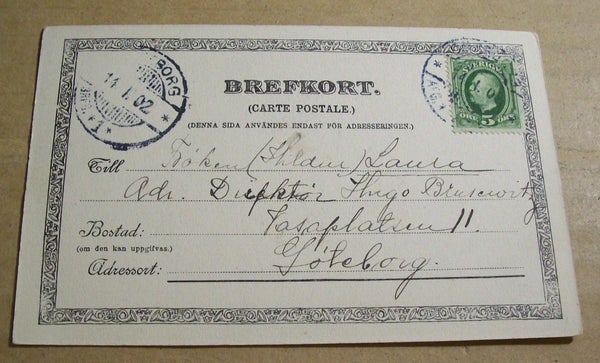 BORG
14.1.02
SVERIGE
5 ÖRE 5
BREFKORT.
(CARTE POSTALE.)
(DENNA SIDA ANVÄNDES ENDAST FÖR ADRESSERINGEN.)
Till Fröken Laura
Adr. Direktör Hugo Brusewitz
Bostad: Vasaplatsen 11.
(om den kan uppgifvas.)
Adressort: Göteborg.